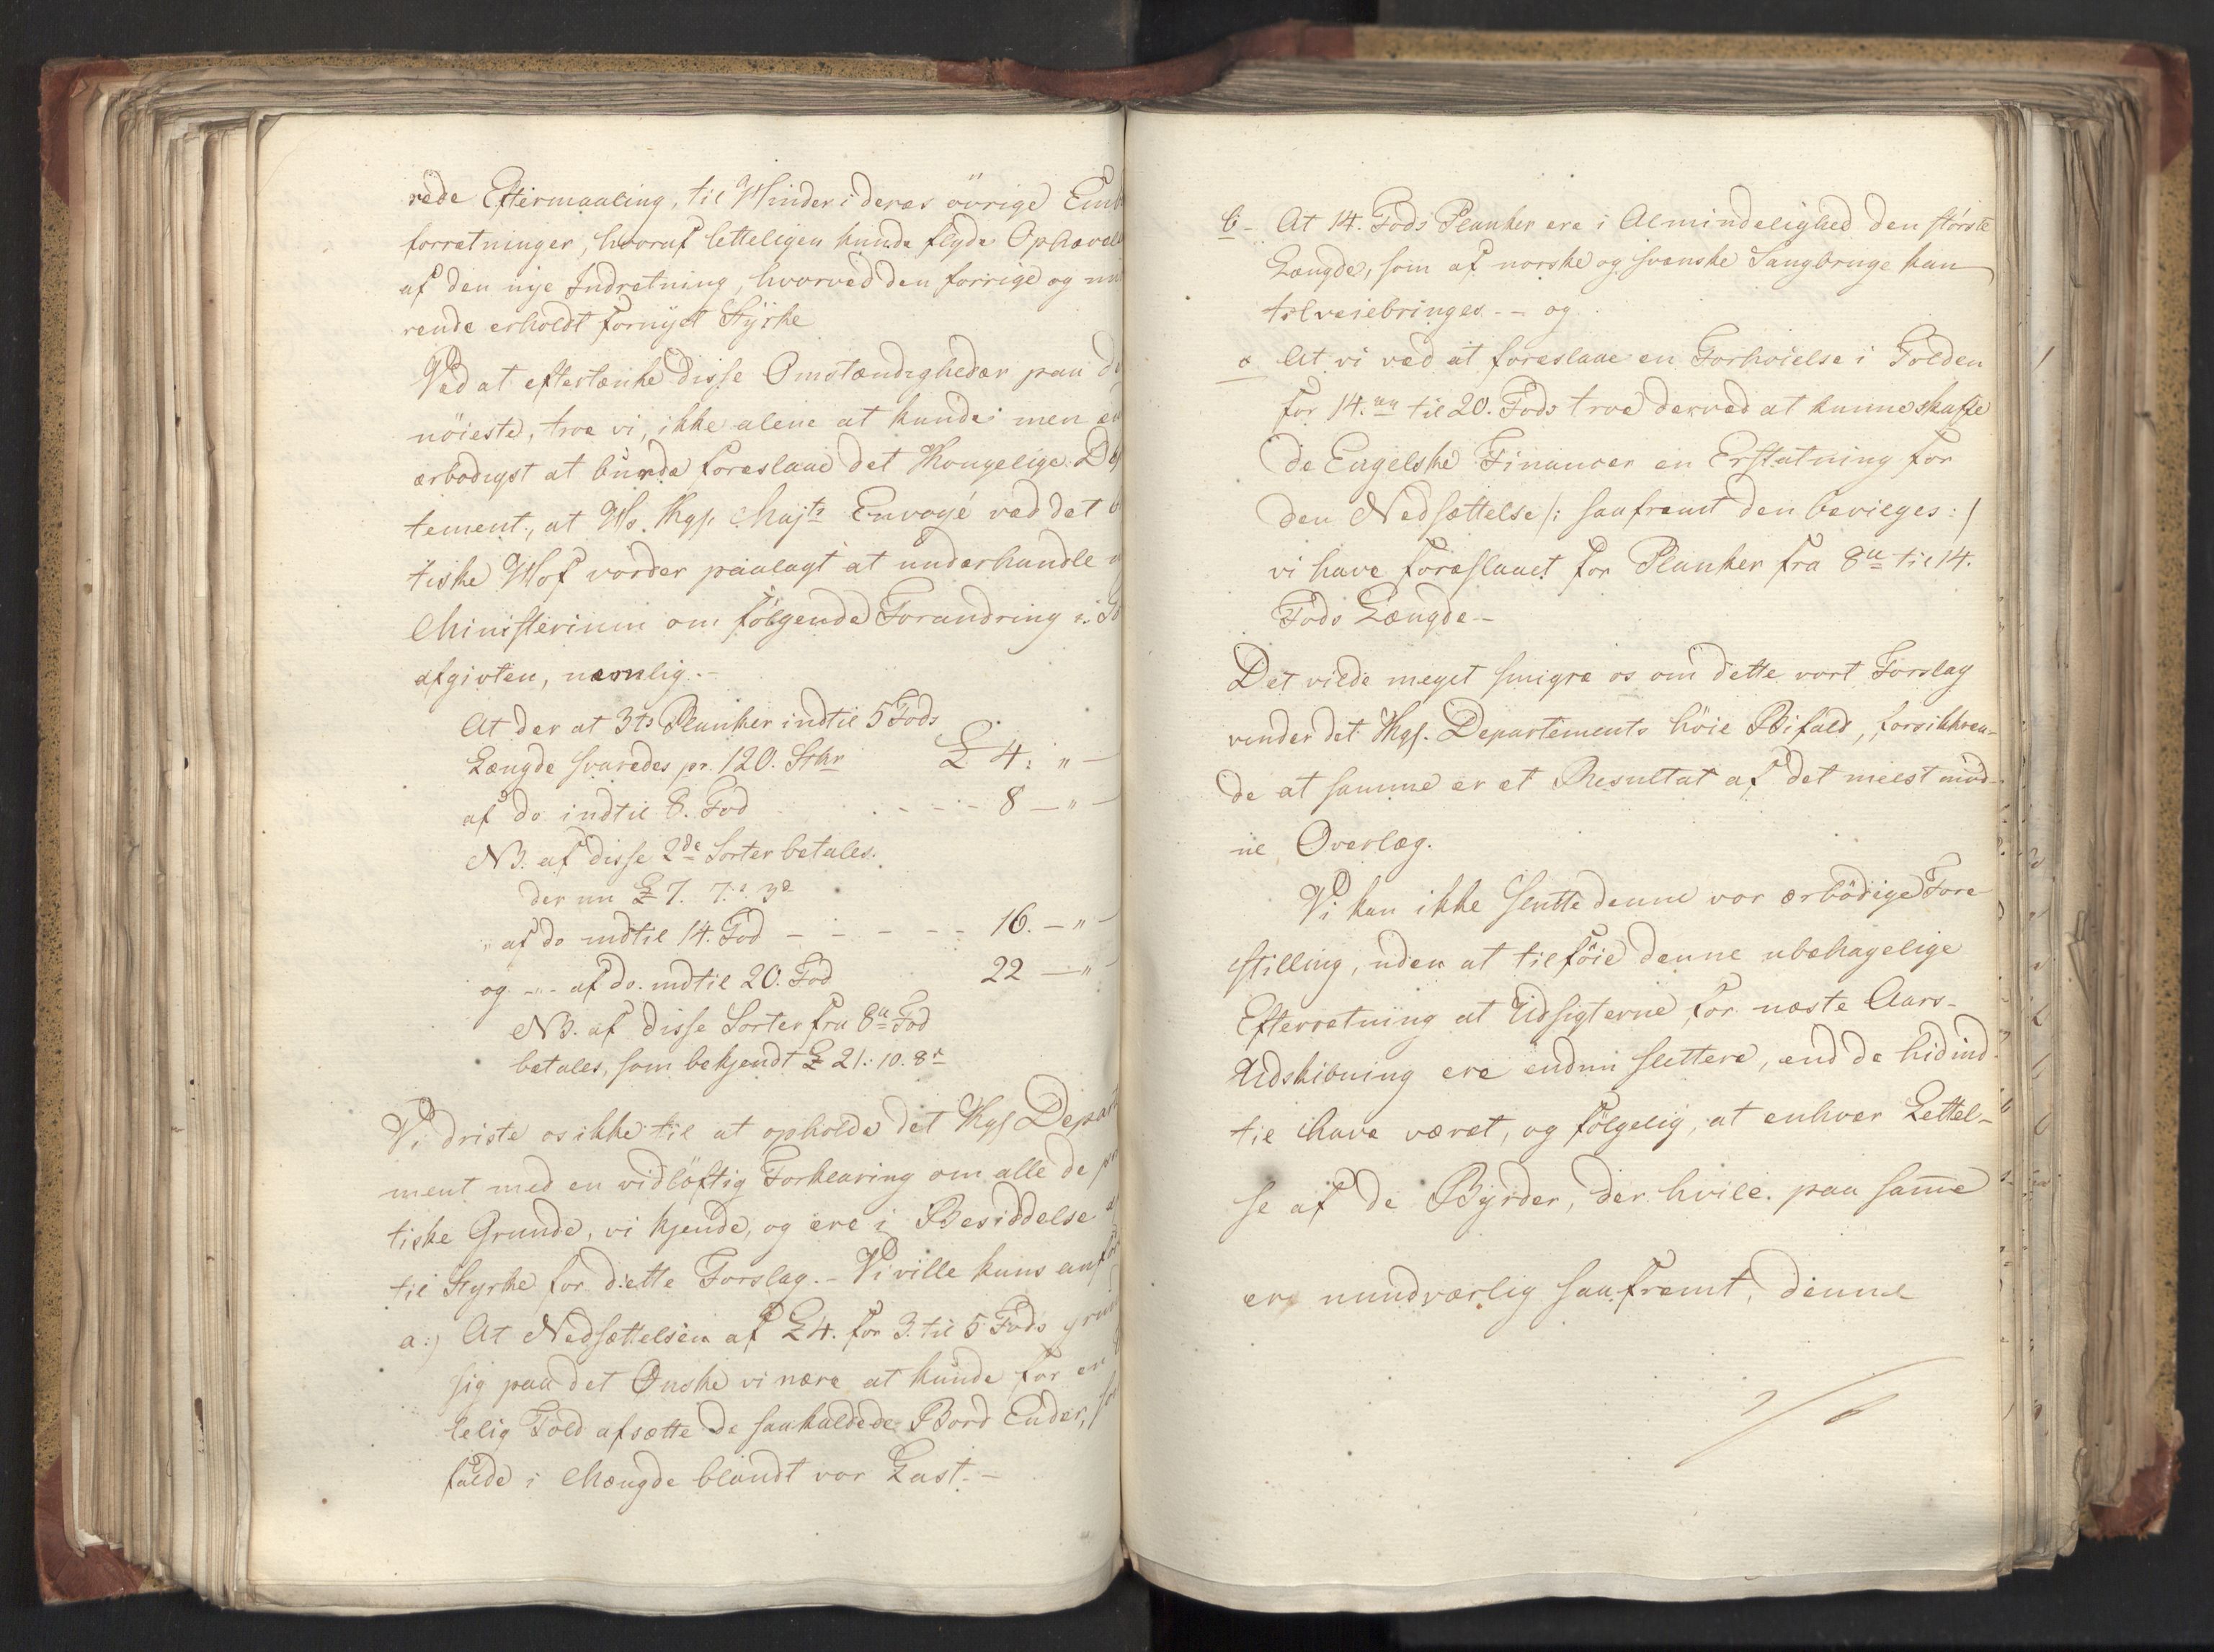 rede Eftermaaling, til Hinder i deres övrige Emb
forretninger, hvoraf letteligen kunde flyde Ophævel
af den nye Indretning, hvorved den forrige og nu
rende erholdt fornyet Styrke
Ved at eftertænke disse Omstændigheder paa d
nöieste, troe vi, ikke alene at kunde men en
ærbödigst at burde foreslaae det Kongelige De
tement, at Hs. Kgl. Majts Envoyé ved det b
tiske Hof vorder paalagt at underhandle
Ministerium om fölgende Forandring i To
afgivten, nemlig.-
At der at 3ts Planker indtil 5 Fods
Længde svaredes pr. 120. Stkr £ 4: „ —
af do indtil 8. Fod - - - 8 — „ —
NB. af disse 2de Sorter betales.
der nu £ 7. 7.s 3d
„ af do indtil 14. Fod - - - - - 16. — „ —
og -„- af do. indtil 20. Fod 22 — „ —
NB. af disse Sorter fra 8te Fod
betales, som bekjendt £ 21: 10. 8d
Vi driste os ikke til at opholde det Kgl Depart
ment med en vidlöftig Forklaring om alle de pr
tiske Grunde, vi kjende, og ere i Besiddelse a
til Styrke for dette Forslag.- Vi ville kuns anför
a:) At Nedsættelsen af £4. for 3. til 5 Fods grun
sig paa det Ønske vi nære at kunde for en
lelig Told afsætte de saakaldede Bord Ender, so
falde i Mængde blandt vor Last.-
b- At 14. Fods Planker ere i Almindelighed den störste
Længde, som af norske og svenske Saugbruge kan
tilveiebringes - - og
c At vi ved at foreslaae en Forhöielse i Tolden
for 14.en til 20. Fods troe derved at kunne skaffe
de Engelske Financer en Erstatning for
den Nedsættelse /: saafremt den bevilges :/
vi have foreslaaet for Planker fra 8te til 14.
Fods Længde-
Det vilde meget smigre os om dette vort Forslag
vinder det Kgl. Departements höie Bifald, forsikkren-
de at samme er et Resultat af det meest mod-
ne Overlæg.
Vi kan ikke slutte denne vor ærbödige Fore-
stilling, uden at tilföie denne ubehagelige
Efterretning at Udsigterne for næste Aars-
Udskibning ere endnu slettere, end de hidind-
til have været, og fölgelig, at enhver Lettel-
se af de Byrder, der hvile paa same
er nundværlig saafremt, denne